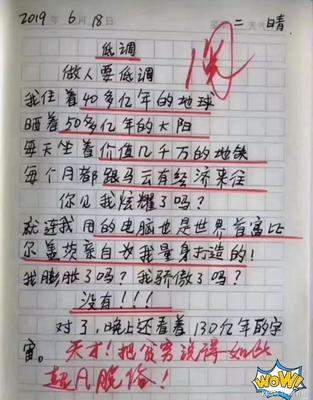 2019年6月18日 星期二 天气晴
低调
做人要低调
我住着40多亿年的地球
晒着50多亿年的太阳
每天坐着价值几千万的地铁
每个月都跟马云有经济来往
你见我炫耀了吗?
就连我用的电脑也是世界首富比
尔盖茨亲自为我量身打造的!
我膨胀了吗?我骄傲了吗?
没有!!!
对了,晚上还看着130亿年的宇
宙。天才!把贫穷说得如此
超凡脱俗!
WOW!